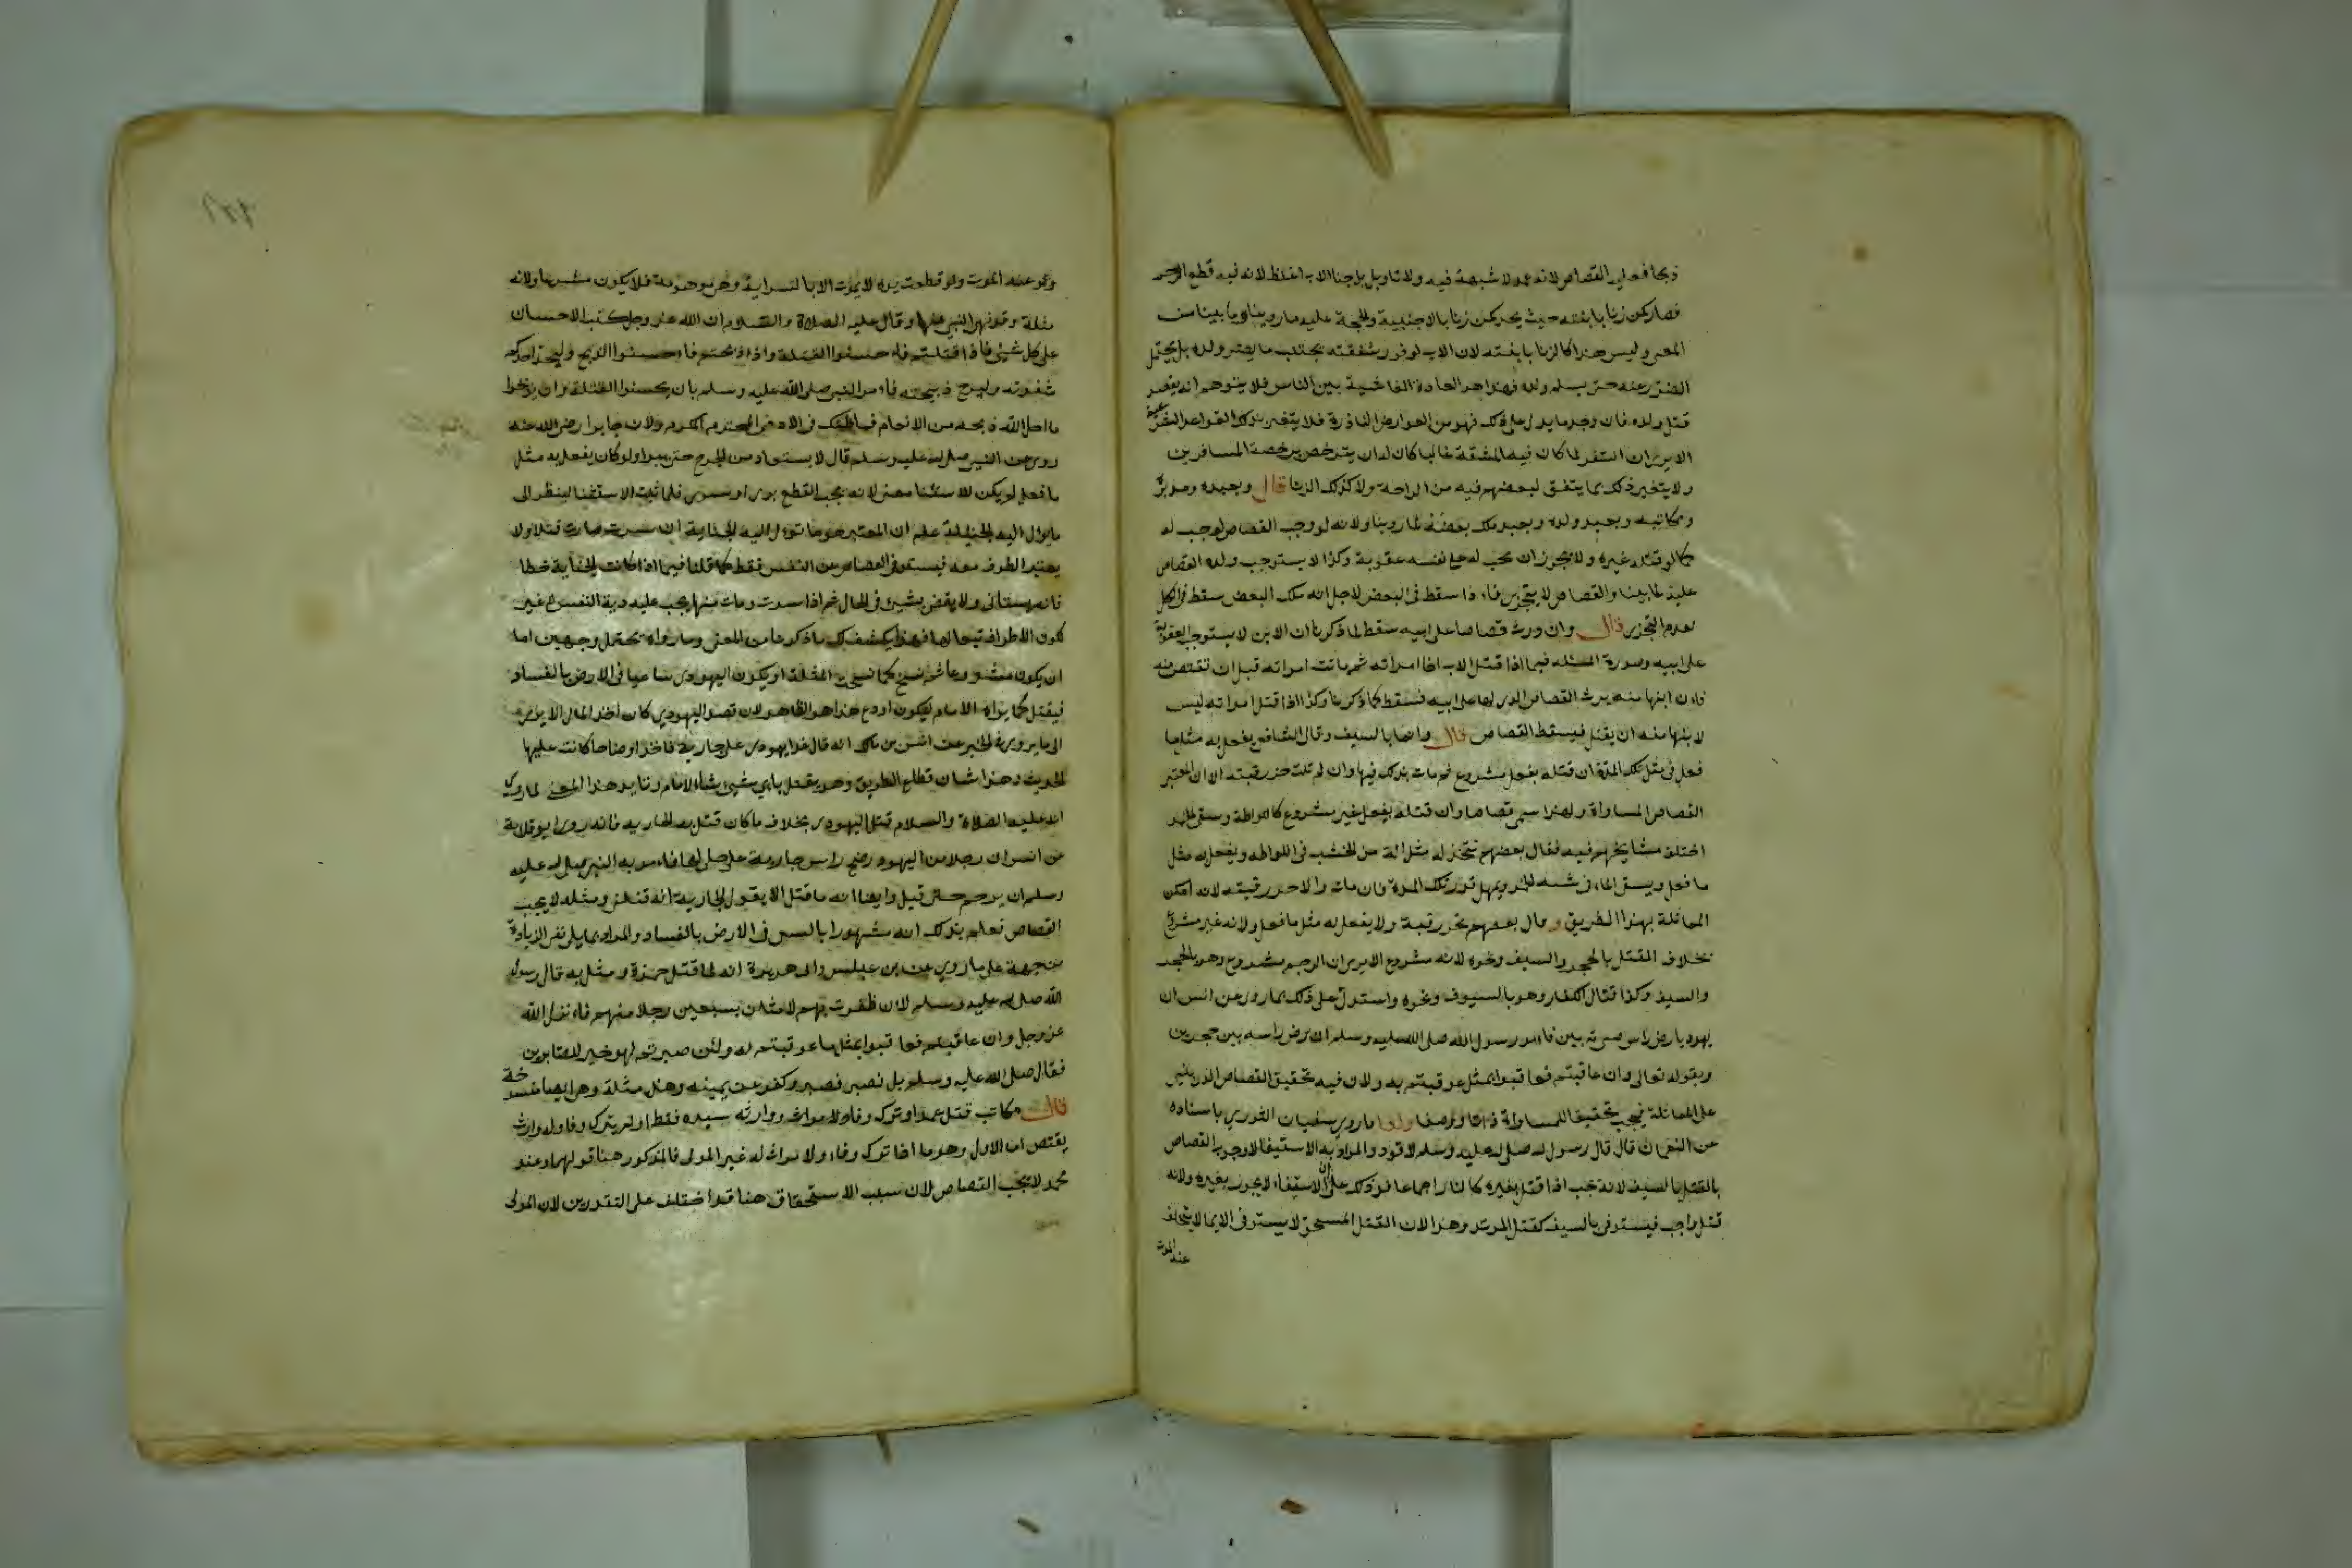 ذبحا فعليه القصاص لانه عمد لا شبهة فيه ولا تاويل بل جناية الاب اغلظ لانه فيه قطع الرحم
فصار كمن زنا بابنته حيث يحد كمن زنا بالاجنبية والحجة عليه ما روينا وما بينا من
المعنى وليس هذا كالزنا بابنته لان الاب لوفور شفقته يجتنب ما يضر ولده بل يحتمل
الضرر عنه حتى يسلم ولده فهذا هو العادة الفاشية بين الناس فلا يتوهم انه يقصد
قتل ولده فان وجد ما يدل على ذلك فهو من العوارض النادرة فلا يتغير بذلك القواعد الشرعية
الا يرى ان السفر لما كان فيه المشقة غالبا كان له ان يترخص برخصة المسافرين
ولا يتغير ذلك بما يتفق لبعضهم فيه من الراحة ولا كذلك الزنا قال وبعبده ومدبره
ومكاتبه وبعبد ولده وبعبد ملك بعضه لما روينا ولانه لو وجب القصاص لوجب له
كما لو قتله غيره ولا يجوز ان يجب له على نفسه عقوبة وكذا لا يستوجب ولده القصاص
عليه لما بينا والقصاص لا يتجزى فاذا سقط فى البعض لاجل انه ملك البعض سقط فى الكل
لعدم التجزى قال وان ورث قصاصا على ابيه سقط لما ذكرنا ان الابن لا يستوجب العقوبة
على ابيه وصورة المسئله فيما اذا قتل الاب اخا امراته ثم ماتت امراته قبل ان تقتص منه
فان ابنها منه يرث القصاص الذى لها على ابيه فسقط لما ذكرنا وكذا اذا قتل امراته ليس
لابنها منه ان يقتل فيسقط القصاص قال وانما بالسيف وقال الشافعى يفعل به مثل ما
فعل فى مثل تلك المدة ان قتله بفعل مشروع ثم مات بذلك فيها وان لم يمت تحز رقبته الا ان المعتبر
القصاص المساواة ولهذا سمى قصاصا وان قتله بفعل غير مشروع كاللواطة وسقى الخمر
اختلف مشايخهم فيه فقال بعضهم تتخذ له مثل الة من الخشب فى اللواطه ويفعل به مثل
ما فعل ويسقى الماء فى شبه الخمر ويمهل قدر تلك المدة فان مات والا تحز رقبته لانه امكن
المماثلة بهذا الطريق وقال بعضهم تحز رقبة ولا يفعل له مثل ما فعل ولانه غير مشروع
بخلاف المقتل بالحجر والسيف ونحوه لانه مشروع الا يرى ان الرجم مشروع وهو بالحجر
والسيف وكذا قتال الكفار وهو بالسيوف ونحوه واستدل على ذلك بما روى عن انس ان
يهوديا رض راس صبية بين فامر رسول الله صلى الله عليه وسلم ان يرض راسه بين حجرين
وبقوله تعالى وان عاقبتم فعاقبوا بمثل ما عوقبتم به ولان فيه تحقيق القصاص الذى ينبئ
على المماثلة فيجب تحقيقا للمساواة ذاتا ووصفا ولنا ما روى سفيان الثورى باسناده
عن النعمان قال قال رسول الله صلى الله عليه وسلم لا قود والمراد به الاستيفا لا وجوب القصاص
بالقتل بالسيف لانه تجب اذا قتل بغيره كالنار اجماعا فدل ذلك على ان الاستيفاء لا يجوز بغيره ولانه
قتل واجب فيستوفى بالسيف كقتل المرتد وهذا لان القتل المستحق لا يستوفى الا بما لا يتخلف
عند الموت
وهو عنه الموت ولو قطعت يده لا يموت الا بالسراية وهى موهومة فلا يكون مشروعا ولانه
مثلة وقد نهى النبى عنها وقال عليه الصلاة والسلام ان الله عز وجل كتب الاحسان
على كل شيئ فاذا قتلتم فاحسنوا القتلة واذا ذبحتم فاحسنوا الذبح وليحد احدكم
شفرته وليرح ذبيحته فامر النبى صلى الله عليه وسلم بان يحسنوا القتلة وان يذبحوا
ما احل الله ذبحه من الانعام فما ظنك فى الادمى المحترم المكرم ولان جابرا رضى الله عنه
روى عن النبى صلى الله عليه وسلم قال لا يستقاد من الجرح حتى يبرا ولو كان يفعل به مثل
ما فعل لم يكن للاستثنا معنى لانه يجب القطع برى او سرى فلما ثبت الاستثنا لينظر الى
ما يؤل اليه الجناية علم ان المعتبر هو ما تؤل اليه الجناية ان سرت صارت قتلا ولا
يعتبر الطرف معه فيستوفى القصاص من النفس فقط كما قلنا فيما اذا كانت الجناية خطا
فانه يستانى ولا يقضى بشيئ فى الحال ثم اذا سرت ومات منها يجب عليه دية النفس لا غير
لكون الاطراف تبعا لها فهذا يكشف لك ما ذكرنا من المعنى وما رواه يحتمل وجهين اما
ان يكون مشروعا ثم نسخ كما نسخت المثلة او يكون اليهودى ساعيا فى الارض بالفساد
فيقتل كما يراه الامام ليكون اردع هذا هو الظاهر لان قصد اليهودى كان اخذ المال الا يرى
الى ما يروى فى الخبر عن انس بن مالك انه قال غدا يهودى على جارية فاخذ اوضاحا كانت عليها
الحديث وهذا شان قطاع الطريق وهو يقتل باى شيئ شاء الامام وتايد هذا المعنى لما روى
انه عليه الصلاة والسلام قتل اليهودى بخلاف ما كان قتل به الجارية فانه روى ابو قلابة
عن انس ان رجلا من اليهود رضخ راس جارية على حلى لها فامر به النبى صلى الله عليه
وسلم ان يرجم حتى قتل وايضا انه ما قتل الا بقول الجارية انه قتلنى ومثله لا يجب
القصاص فعلم بذلك انه مشهورا بالسعى فى الارض بالفساد والمراد بما يلى نفى الزيادة
من جهة على ما روى عن بن عباس وابى هريرة انه لما قتل حمزة ومثل به قال رسول
الله صلى الله عليه وسلم لان ظفرت بهم لامثلن بسبعين رجلا منهم فانزل الله
عز وجل وان عاقبتم فعاقبوا بمثل ما عوقبتم به ولئن صبرتم لهو خير للصابرين
فقال صلى الله عليه وسلم بل نصبر فصبر وكفر عن يمينه وهذا مثلة وهى ايضا منسوخة
قال مكاتب قتل عمدا وترك وفاء ولا ووارثه سيده فقط او لم يترك وفا وله وارث
يقتص اما الاول وهو ما اذا ترك وفاء ولا وارث له غير المولى فالمذكور هنا قولهما وعند
محمد لا يجب القصاص لان سبب الاستحقاق هنا قد اختلف على التقديرين لان المولى